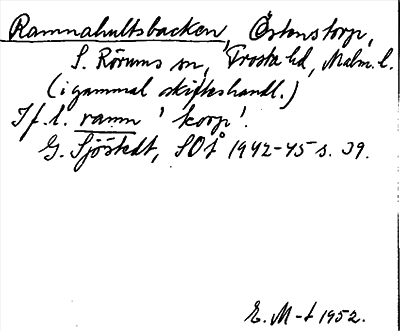 Ramnahultsbacken, Östenstorp,
S. Rörums sn, Frosta hd, Malm. l.
(i gammal skifteshandl.)
Jf. l. ramn 'korp'.
G. Sjöstedt, SOÅ 1942-45 s. 39.
E. M-t 1952.